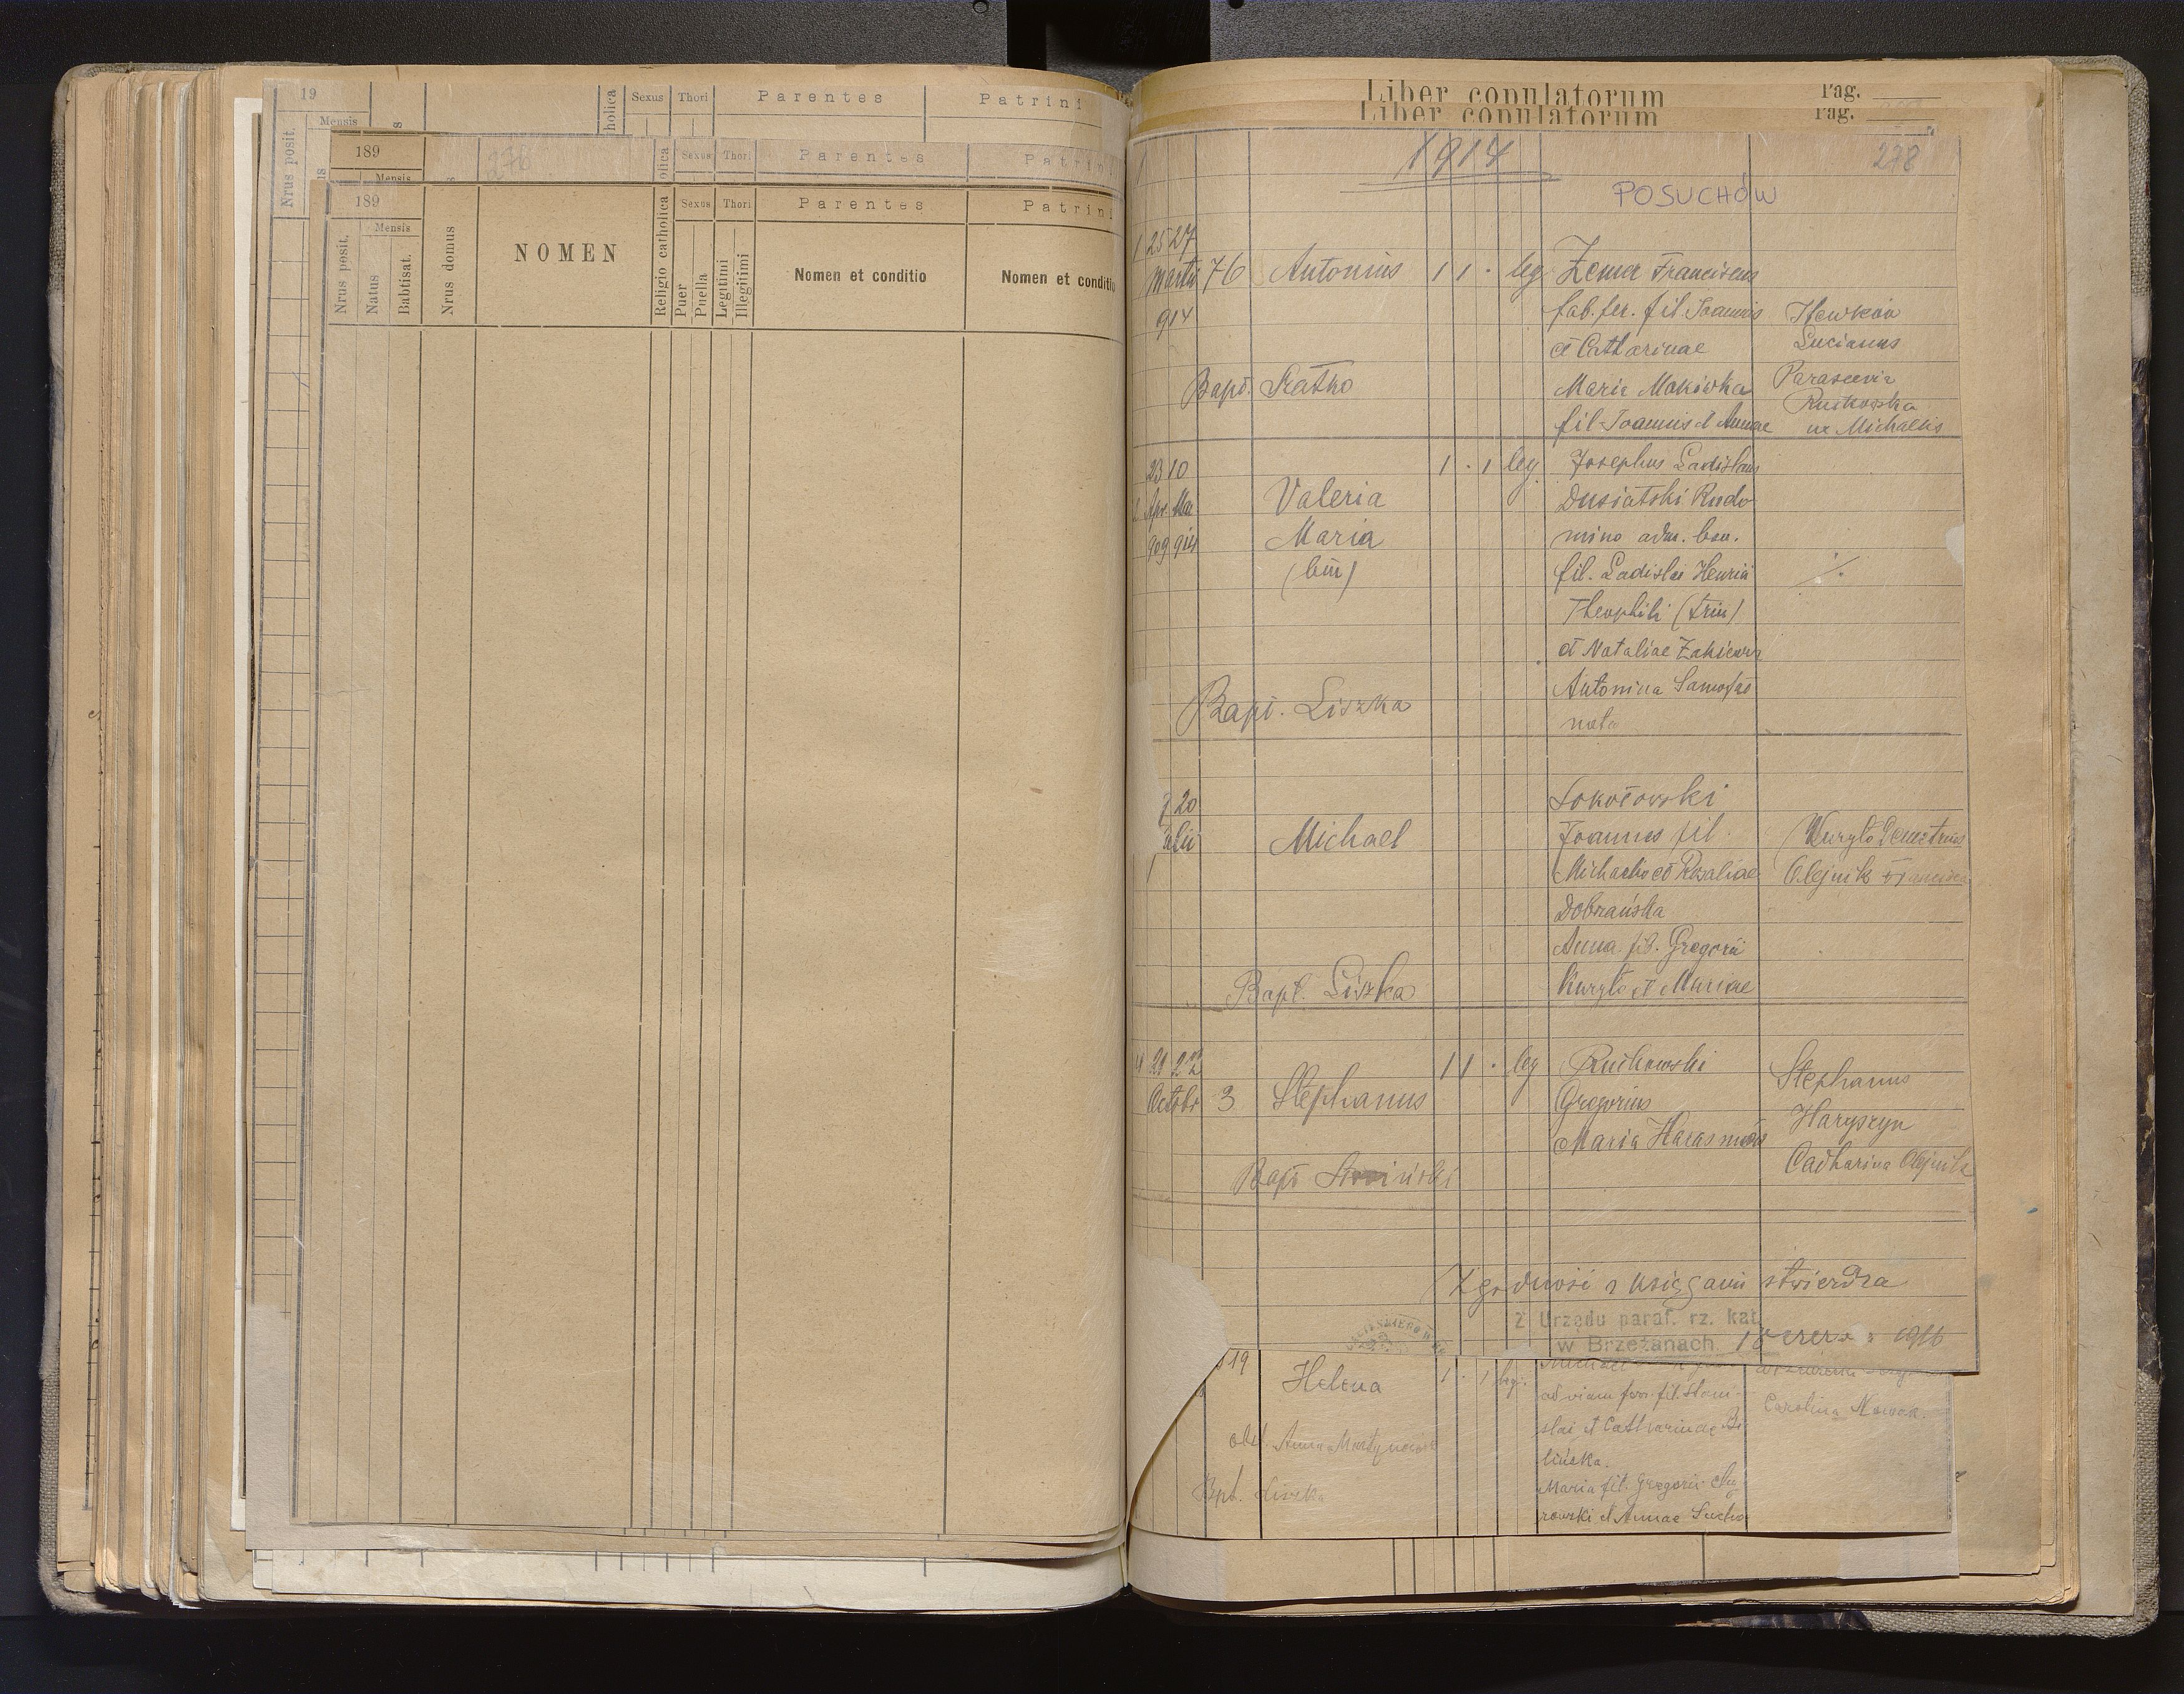 19
Mensis
Nrus posit.
holica
Sexus
Thori
Parentes
Patrini
189
Mensis
276
olica
Sexus
Thori
Parentes
Patrin
189
Mensis
Nrus posit.
Natus
Babtisat.
Nrus domus
NOMEN
Religio catholica
Sexus
Puer
Puella
Thori
Legitimi
Illegitimi
Parentes
Nomen et conditio
Patrini
Nomen et conditio
Liber copulatorum Pag.
Liber copulatorum Pag.
1914
278
POSUCHÓW
1 25 27
Martii
914
76
Antonius
1 1 · leg
Zema Franciscus
fab. fer. fil. Joannis
et Catharinae
Maria Makówka
fil Joannis et Annae
Lucianus
Parascevia
ux Michaelis
Bapt. Bratko
23 10
Apr. Mai
909 914
Valeria
Maria
(bin)
1 · 1 leg
Josephus Ladislaus
Dusiatski Rudo
mino adm. bon.
fil. Ladislai Henrici
Theophili (trin)
et Nataliae
Antonina
nata
Bapt. Liszka
7 20
Julii
Michael
Sokołowski
Joannes fil.
Michaelis et Rosaliae
Dobrańska
Anna fil. Gregorii
Kuryło et Mariae
Kuryło Demetrius
Olejnik Francisca
Bapt. Liszka
4 21 22
Octobr
3
Stephanus
1 1 · leg
Gregorius
Maria
Stephanus
Haryszyn
Catharina Olejnik
Bapt
Zgodność z księgami stwierdza
Z Urzędu paraf. rz. kat.
w Brzeżanach
19
Helena
1 · 1 leg.
ad viam ferr. fil. Stani-
slai et Catharinae Bi
lińska.
Maria fil. Gregorii
rowski et Annae
Carolina Nowak.
obst. Anna
Bpt. Liszka